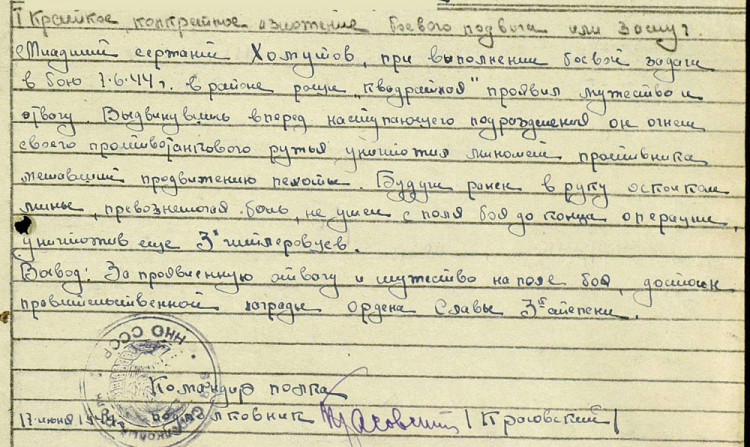 I Краткое, конкретное изложение боевого подвига или заслуг.
Младший сержант Хомутов, при выполнении боевой задачи
в бою 7.6.44 г. в районе рощи "Квадратная" проявил мужество и
отвагу. Выдвинувшись вперед наступающего подразделения он огнем
своего противотанкового ружья уничтожил миномет противника
мешавший продвижению пехоты. Будучи ранен в руку осколком
мины, превозмогая боль, не ушел с поля боя до конца операции,
уничтожив еще 3х гитлеровцев.
Вывод: За проявленную отвагу и мужество на поле боя, достоин
правительственной награды ордена Славы 3й степени.
НКО СССР
Командир полка
17 июня подполковник /Красовский/